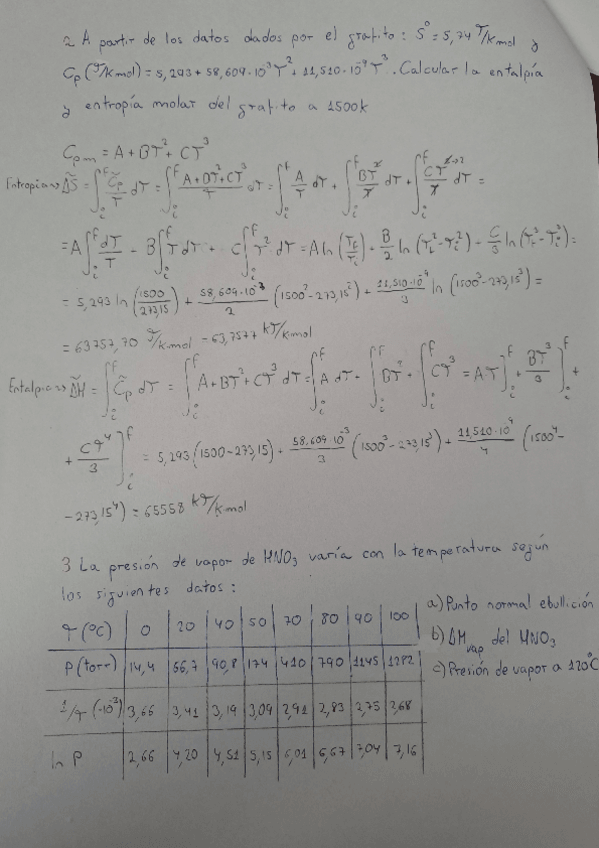 2 A partir de los datos dados por el grafito: S° = 5,74 J/Kmol y
Cp (J/Kmol) = 5,293 + 58,609·10⁻³ T² + 11,510·10⁻⁹ T³. Calcular la entalpía
y entropía molar del grafito a 1500k
Cpm = A + BT² + CT³
Entropia => ΔS̃ = ∫ᵢᶠ C̃p/T dT = ∫ᵢᶠ (A+BT²+CT³)/T dT = ∫ᵢᶠ A/T dT + ∫ᵢᶠ BT²/T dT + ∫ᵢᶠ CT³⁻²/T dT =
= A∫ᵢᶠ dT/T + B∫ᵢᶠ T dT + C∫ᵢᶠ T² dT = A ln(Tf/Ti) + B/2 ln(Tf² - Ti²) + C/3 ln(Tf³ - Ti³) =
= 5,293 ln(1500/273,15) + 58,609·10⁻³/2 (1500² - 273,15²) + 11,510·10⁻⁹/3 ln (1500³ - 273,15³) =
= 63757,70 J/K·mol = 63,7577 kJ/K·mol
Entalpia => ΔH̃ = ∫ᵢᶠ C̃p dT = ∫ᵢᶠ A + BT² + CT³ dT = ∫ᵢᶠ A dT + ∫ᵢᶠ BT² + ∫ᵢᶠ CT³ = A·T]ᵢᶠ + BT³/3]ᵢᶠ +
+ CT⁴/3]ᵢᶠ = 5,293 (1500 - 273,15) + 58,609·10⁻³/3 (1500³ - 273,15³) + 11,510·10⁹/4 (1500⁴ -
- 273,15⁴) = 65558 kJ/K·mol
3 La presión de vapor de HNO₃ varía con la temperatura según
los siguientes datos:
T (°C) 0 20 40 50 70 80 90 100
P (torr) 14,4 66,7 90,8 174 410 790 1145 1282
1/T (·10⁻³) 3,66 3,41 3,19 3,09 2,91 2,83 2,75 2,68
ln P 2,66 4,20 4,51 5,15 6,01 6,67 7,04 7,16
a) Punto normal ebullición
b) ΔHvap del HNO₃
c) Presión de vapor a 120°C